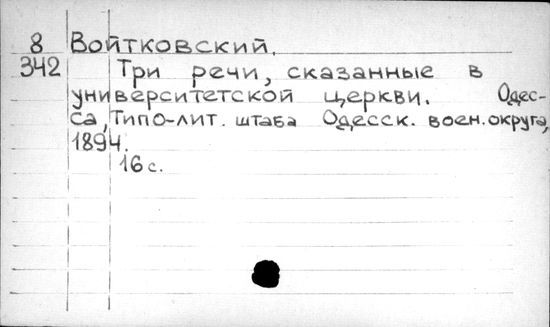 8 Войтковский.
342 Три речи, сказанные в
университетской церкви. Одес-
са, Типо-лит. штаба Одесск. воен. округа,
1894.
16 с.